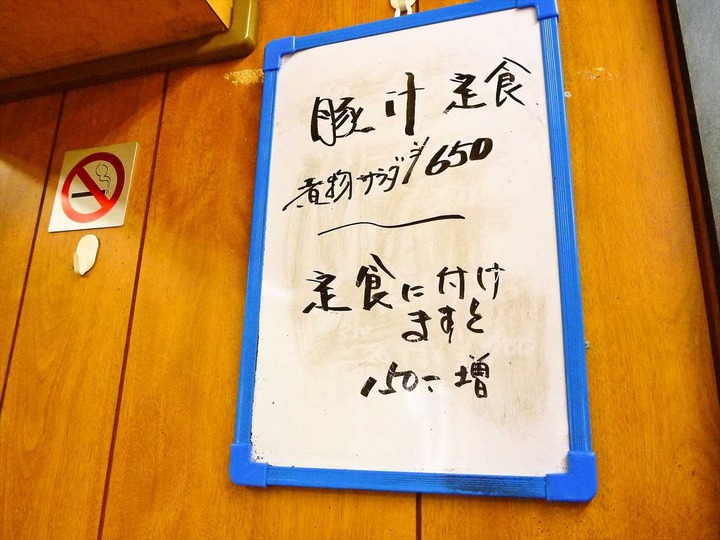 豚汁定食
煮物サラダ 650
定食に付け
ますと
150増